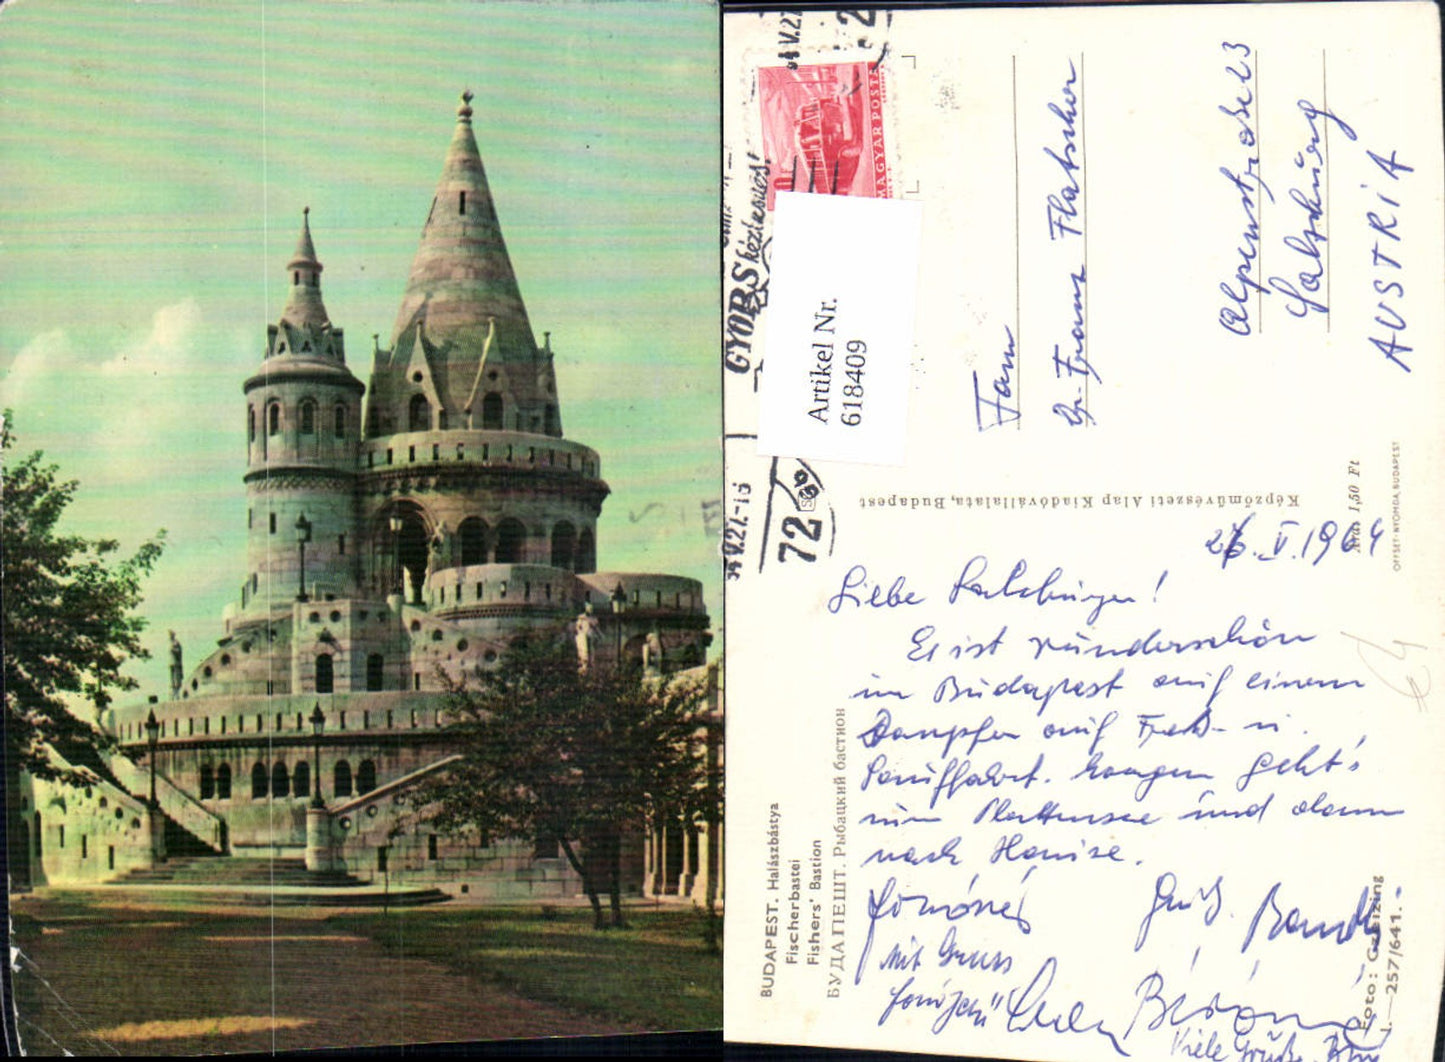 MAGYAR POSTA
GYORS kézbesítés!
72
Artikel Nr.
618409
Frau
Dr. Franz Flatscher
Alpenstrasse 23
Salzburg
AUSTRIA
Képzőművészeti Alap Kiadóvállalata, Budapest
Ára 1,50 Ft
OFFSET-NYOMDA, BUDAPEST
26.V.1964
Liebe Salzburger!
Es ist wunderschön
in Budapest auf einem
Dampfer auf Freß- u.
Sauffahrt. Morgen geht's
zum Plattensee und dann
nach Hause.
Gruß.
mit Gruss
Viele Grüße
BUDAPEST. Halászbástya
Fischerbastei
Fishers' Bastion
БУДАПЕШТ. Рыбацкий бастион
Foto:
257/641.-